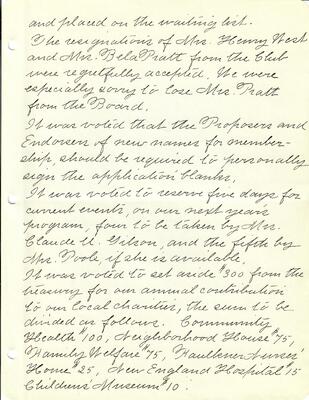 and placed on the waiting list.
The resignations of Mrs. Henry West
and Mrs. Bela Pratt from the Club
were regretfully accepted. We were
especially sorry to lose Mrs. Pratt
from the Board.
It was voted that the Proposers and
Endorsers of new names for member-
ship, should be required to personally
sign the application blanks.
It was voted to reserve five days for
current events, on our next years
program, four to be taken by Mrs.
Claude U. Gilson, and the fifth by
Mrs. Poole, if she is available.
It was voted to set aside $300 from the
treasury for our annual contribution
to our local charities, the sum to be
divided as follows. Community
Health $100, Neighborhood House $75,
Family Welfare $75, Faulkner Nurses'
Home $25, New England Hospital $15
Childrens' Museum $10.